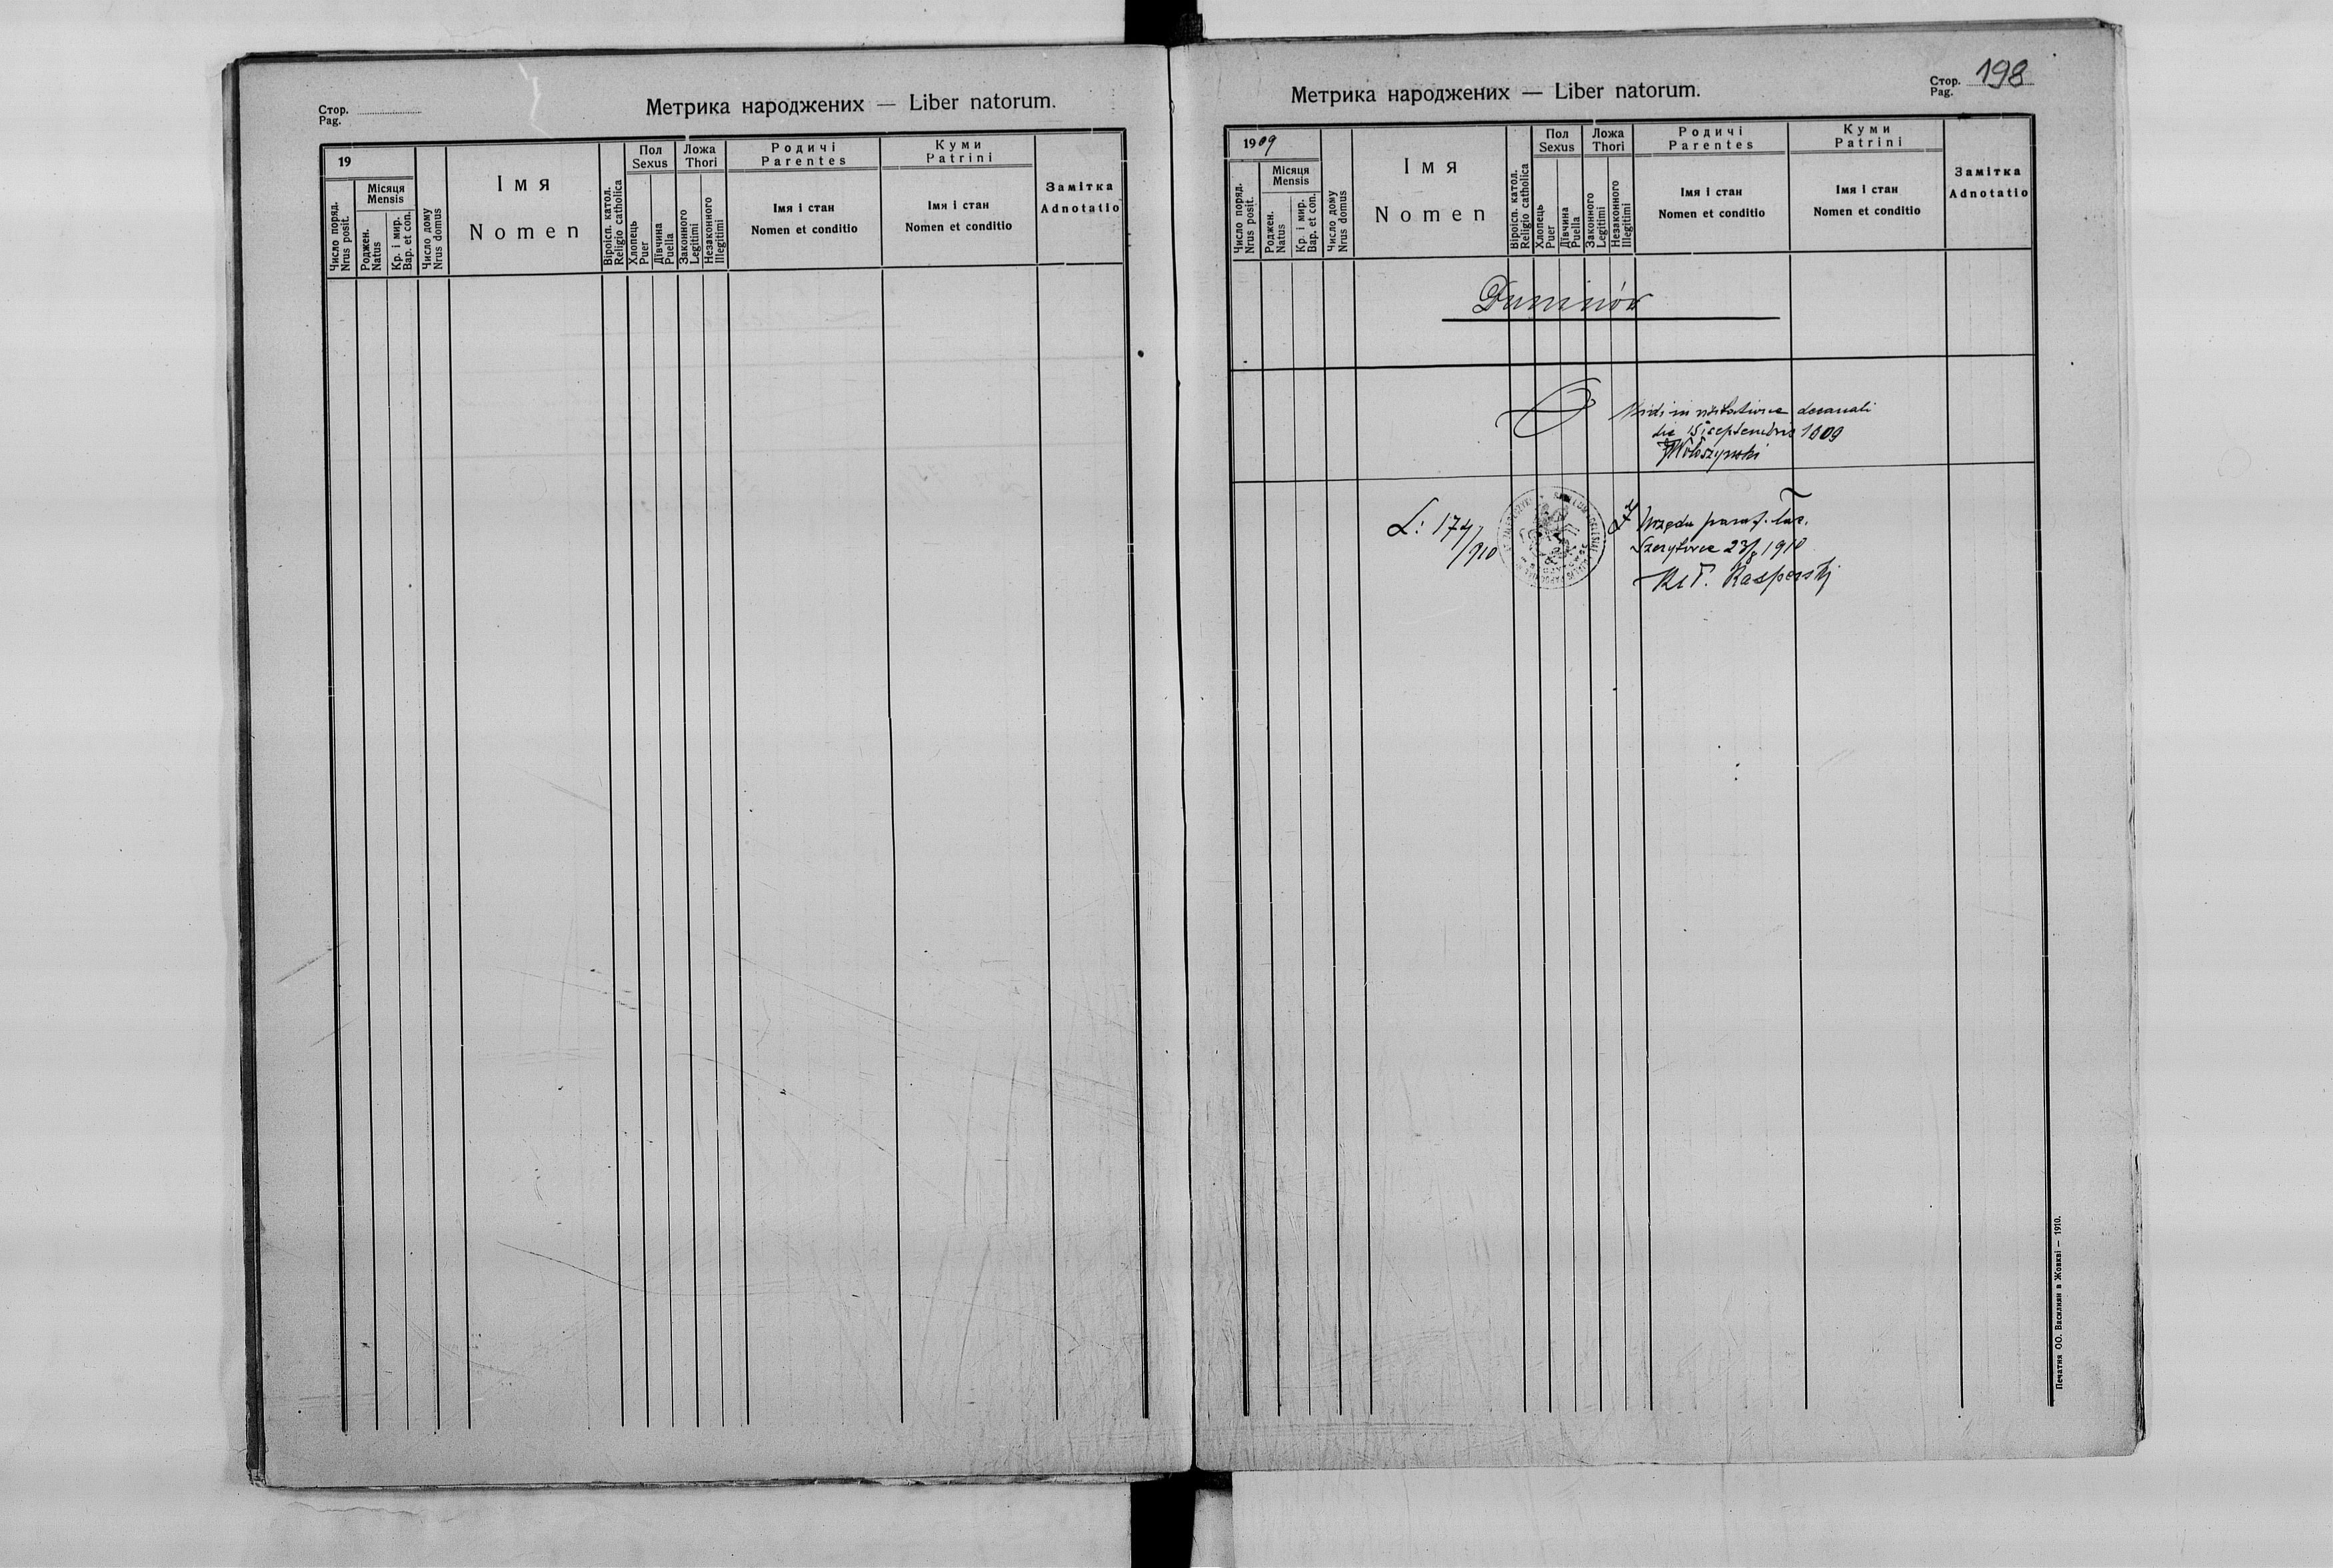 Стор.
Pag.
Метрика народжених — Liber natorum.
19
Число поряд.
Nrus posit.
Місяця
Mensis
Роджен.
Natus
Кр. і мир.
Bap. et con.
Число дому
Nrus domus
Імя
Nomen
Віроісп. катол.
Religio catholica
Пол
Sexus
Хлопець
Puer
Дівчина
Puella
Ложа
Thori
Законного
Legitimi
Незаконного
Illegitimi
Родичі
Parentes
Імя і стан
Nomen et conditio
Куми
Patrini
Імя і стан
Nomen et conditio
Замітка
Adnotatio
Метрика народжених — Liber natorum.
Стор. 198
Pag.
1909
Число поряд.
Nrus posit.
Місяця
Mensis
Роджен.
Natus
Кр. і мир.
Bap. et con.
Число дому
Nrus domus
Імя
Nomen
Віроісп. катол.
Religio catholica
Пол
Sexus
Хлопець
Puer
Дівчина
Puella
Ложа
Thori
Законного
Legitimi
Незаконного
Illegitimi
Родичі
Parentes
Імя і стан
Nomen et conditio
Куми
Patrini
Імя і стан
Nomen et conditio
Замітка
Adnotatio
Duninów
Vidi in visitatione decanali
die 15 septembris 1909
Wołoszyński
L: 174/910
Z Urzędu paraf. łac.
1910
Kasperski
Печатня ОО. Василиян в Жовкві — 1910.